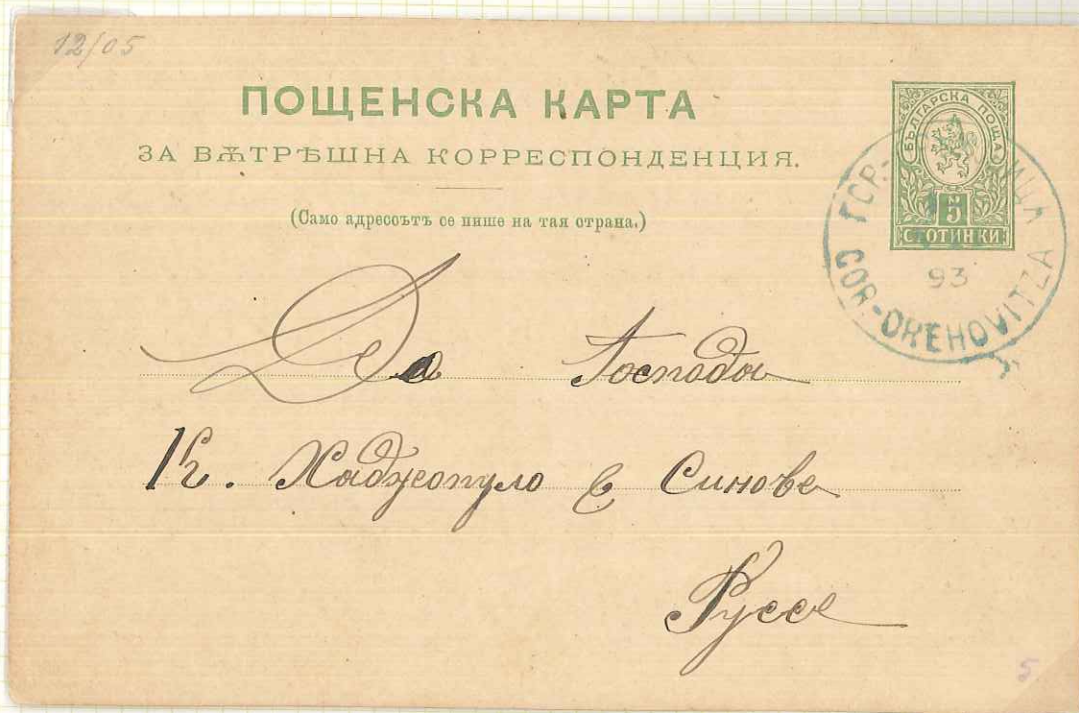 12/05
ПОЩЕНСКА КАРТА
ЗА ВѪТРѢШНА КОРРЕСПОНДЕНЦИЯ.
(Само адрессътъ се пише на тая страна.)
БЪЛГАРСКА ПОЩА
5
СТОТИНКИ
ГОР-
93
GOR-OREHOVITZA
До Господа
К. Хаджопуло & Синове
Руссе
5